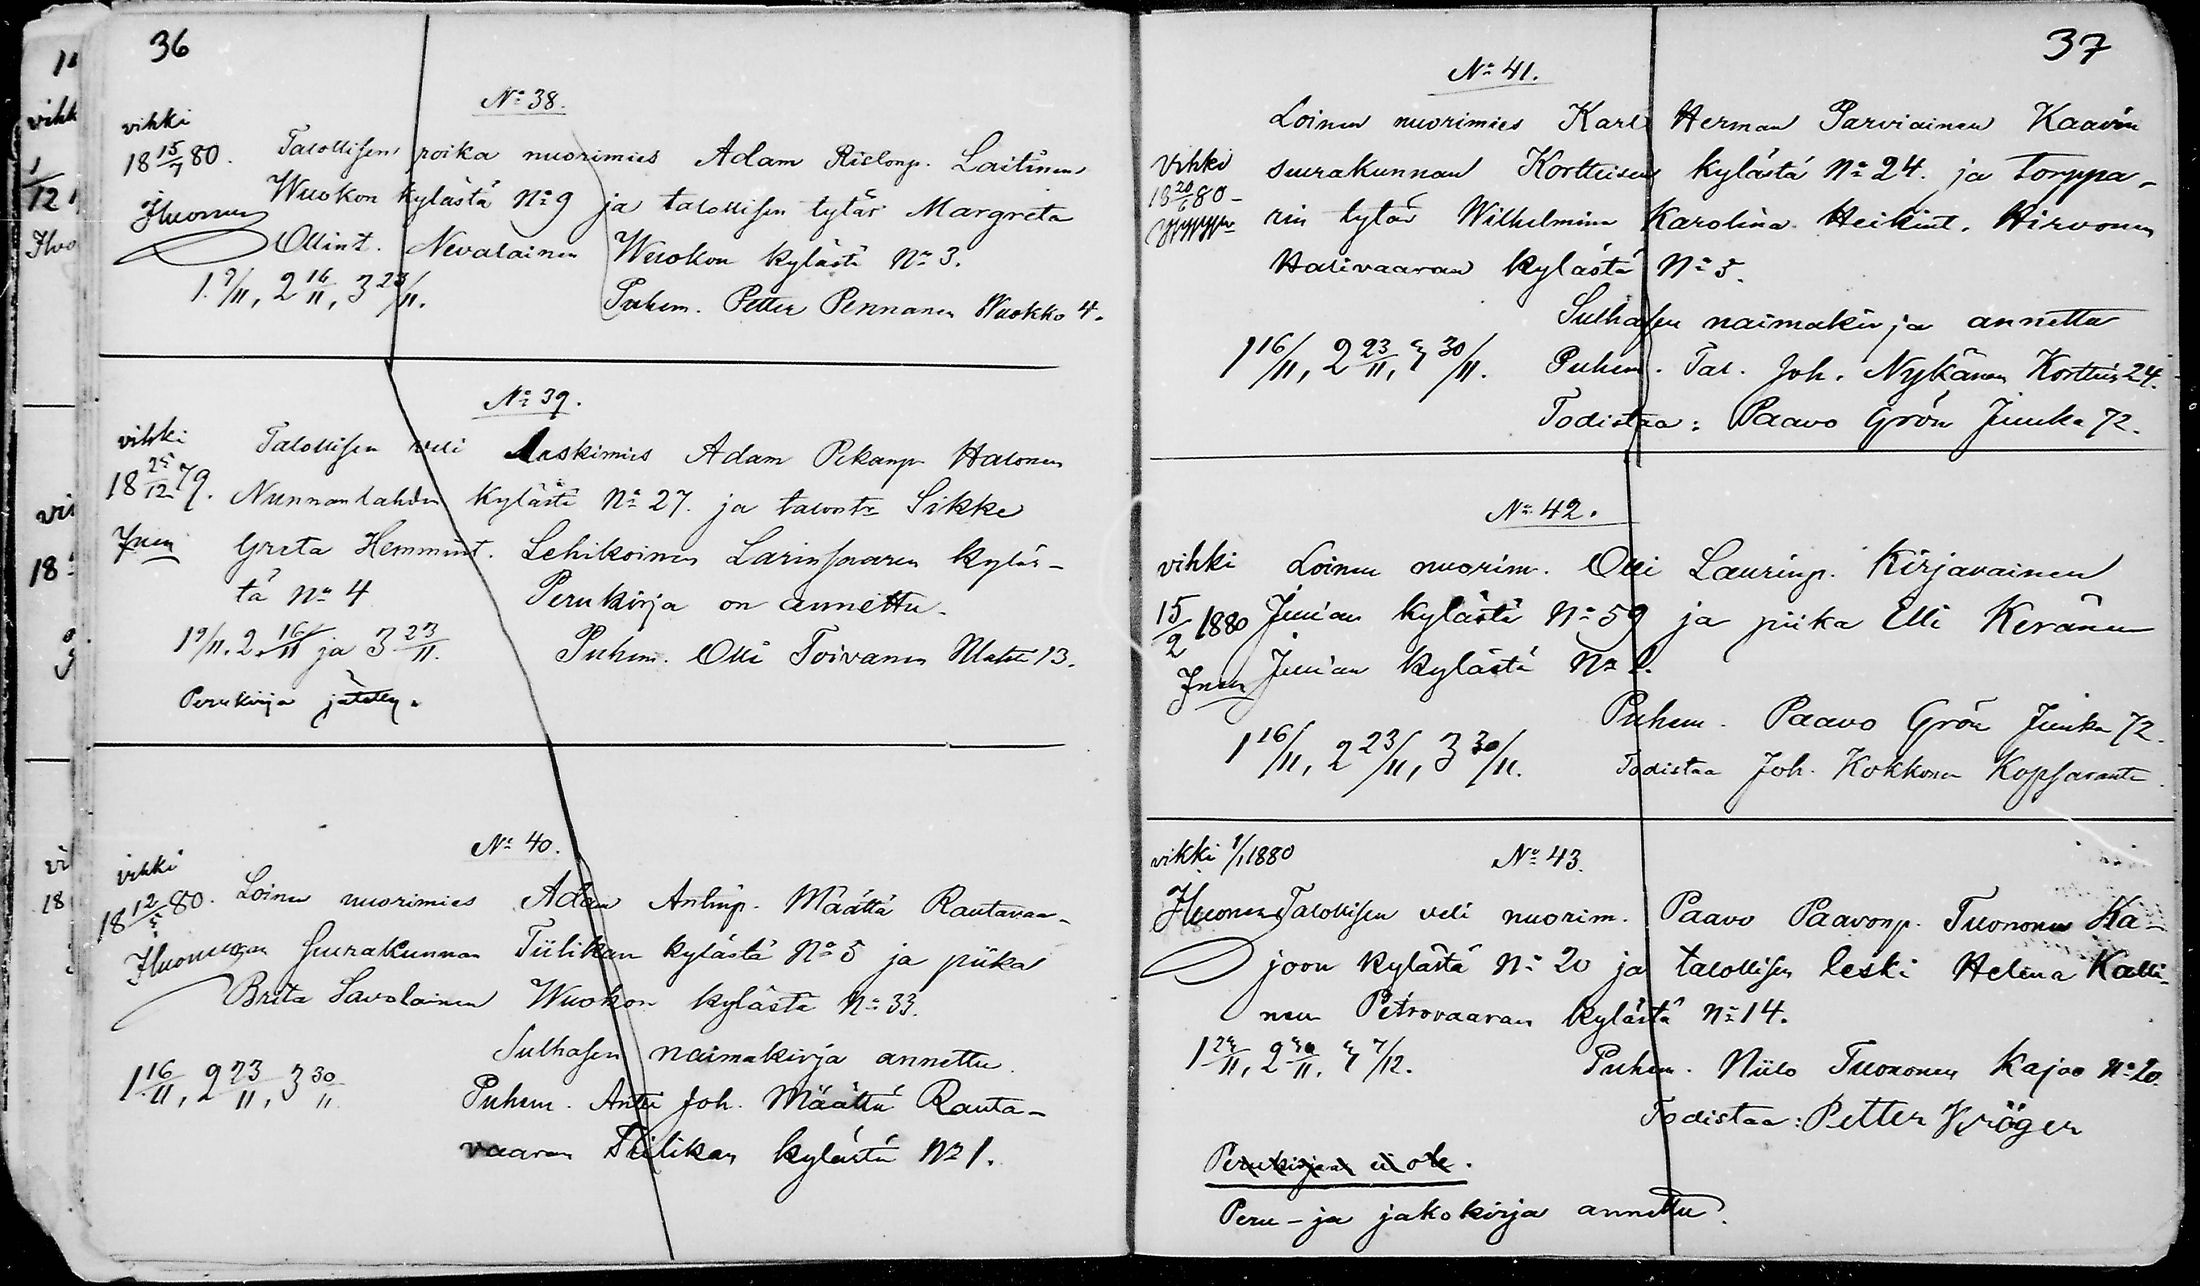 36
No 38.
vihki
18 15/7 80.
Talollisen poika nuorimies Adam Risto np. Laitinen
Wuokon kylästä No 9 ja talollisen tytär Margreta
Ollint. Nevalainen Wuokon kylästä No 3.
1. 9/11, 2 16/11, 3 23/11.
Puhem. Petter Pennanen Wuokko 4.
No 39.
vihki
18 25/12 79.
Talollisen veli leskimies Adam Pekanp. Halonen
Nunnanlahden kylästä No 27. ja talontr Sikke
Greta Hemmint. Lehikoinen Larinsaaren kyläs-
tä No 4
Perukirja on annettu.
1 9/11. 2. 16/11 ja 3 23/11.
Puhem. Olli Toivanen 13.
Perukirja jätetty.
No 40.
vihki
18 12/5 80.
Loinen nuorimies Adam Antinp. Määttä Rautavaa-
ran seurakunnan Tiilikan kylästä No 5 ja piika
Brita Savolainen Wuokon kylästä No 33.
Sulhasen naimakirja annettu.
1 16/11, 2 23/11, 3 30/11
Puhem. Antti Joh. Määttä Rauta-
vaaran Tiilikan kylästä No 1.
37
No 41.
Loinen nuorimies Karl Herman Parviainen Kaavin
vihki
18 20/6 80-
seurakunnan Kortteisen kylästä No 24. ja torppa-
rin tytär Wilhelmina Karolina Heikint. Hirvonen
Halivaaran kylästä No 5.
Sulhasen naimakirja annettu
1 16/11, 2 23/11, 3 30/11.
Puhem. Tal. Joh. Nykänen Kortteis 24.
Todistaa: Paavo Grön Juuka 72.
No 42.
vihki
15/2 1880
Loinen nuorim. Olli Laurinp. Kirjavainen
Juuan kylästä No 59 ja piika Elli Keränen
Juuan kylästä No
Puhem. Paavo Grön Juuka 72.
1 16/11, 2 23/11, 3 30/11.
Todistaa Joh. Kokkonen
vihki 1/1 1880
No 43.
Talollisen veli nuorim. Paavo Paavonp. Tuononen Ka-
joon kylästä No 20 ja talollisen leski Helena Kalli-
nen Petrovaaran kylästä No 14.
1 23/11, 2 30/11, 3 7/12.
Puhem. Niilo Tuononen Kajoo No 20.
Todistaa: Petter Kröger
Perukirjaa ei ole.
Peru- ja jakokirja annettu.